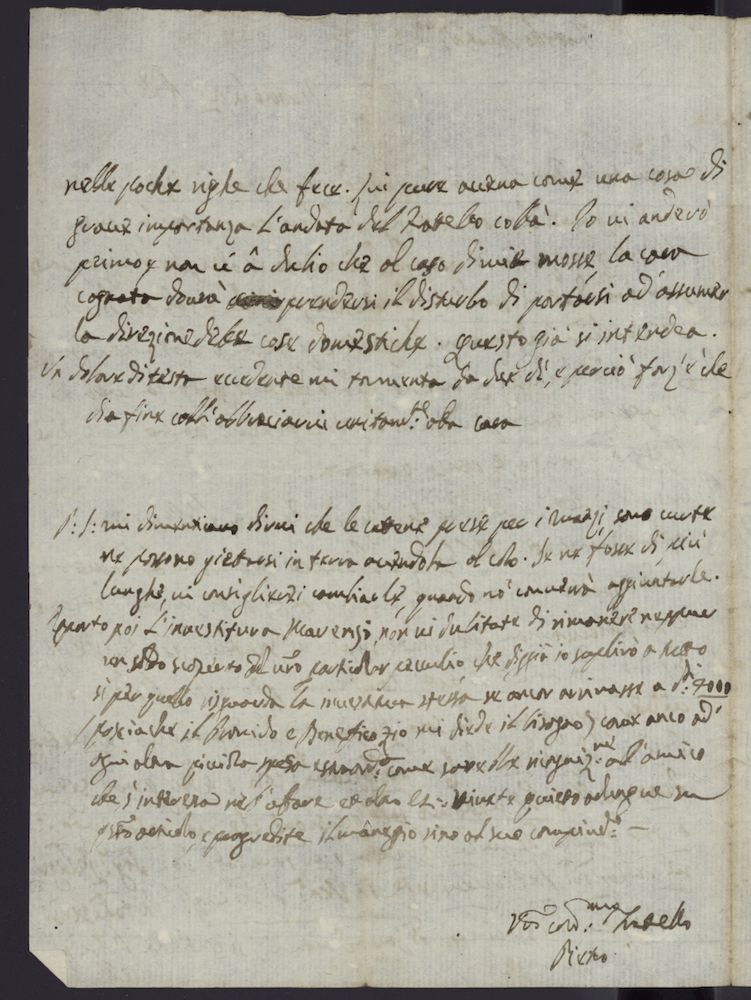 nelle poche righe che fece. Qui pure avena come una cosa di
grave importanza l'andata del fratello colà. Io vi anderò
primo, e non c'è dubio che al caso di mie mosse la cara
cognata dovrà prendersi il disturbo di portarsi ad assumer
la direzione delle cose domestiche. Questo già si intendea.
Un dolore di testa eccedente mi tormenta da due dì, e perciò forz'è che
dia fine coll'abbracciarvi unitam.te alla cara
P: S: mi dimenticavo dirvi che le catene perse per i Manzi sono curte
ne possono gietarsi in terra avendole al collo. Se ne fosse di più
lunghe, vi consiglierei cambiarle, quando nò converrà aggiuntarle.
Rapporto poi l'investitura Marenzi, non vi dubitate di rimanere neppur
un soldo scoperto del vro particolar peculio che diggià io suplirò a tutto
sì per quello risguarda la investitura stessa se ancor arrivasse a d.ti 7000
posciache il Bonvido e Beneficozio mi diede il bisogno, come anco ad
ogni altra picciola spesa come sarebbe ricogniz.ne all'amico
che s'interessa nell'affare ed altro etc: Vivete quieto adunque su
qsto articolo, e progredite il maneggio sino al suo compim.to —
Vro cord.mo Fratello
Pietro